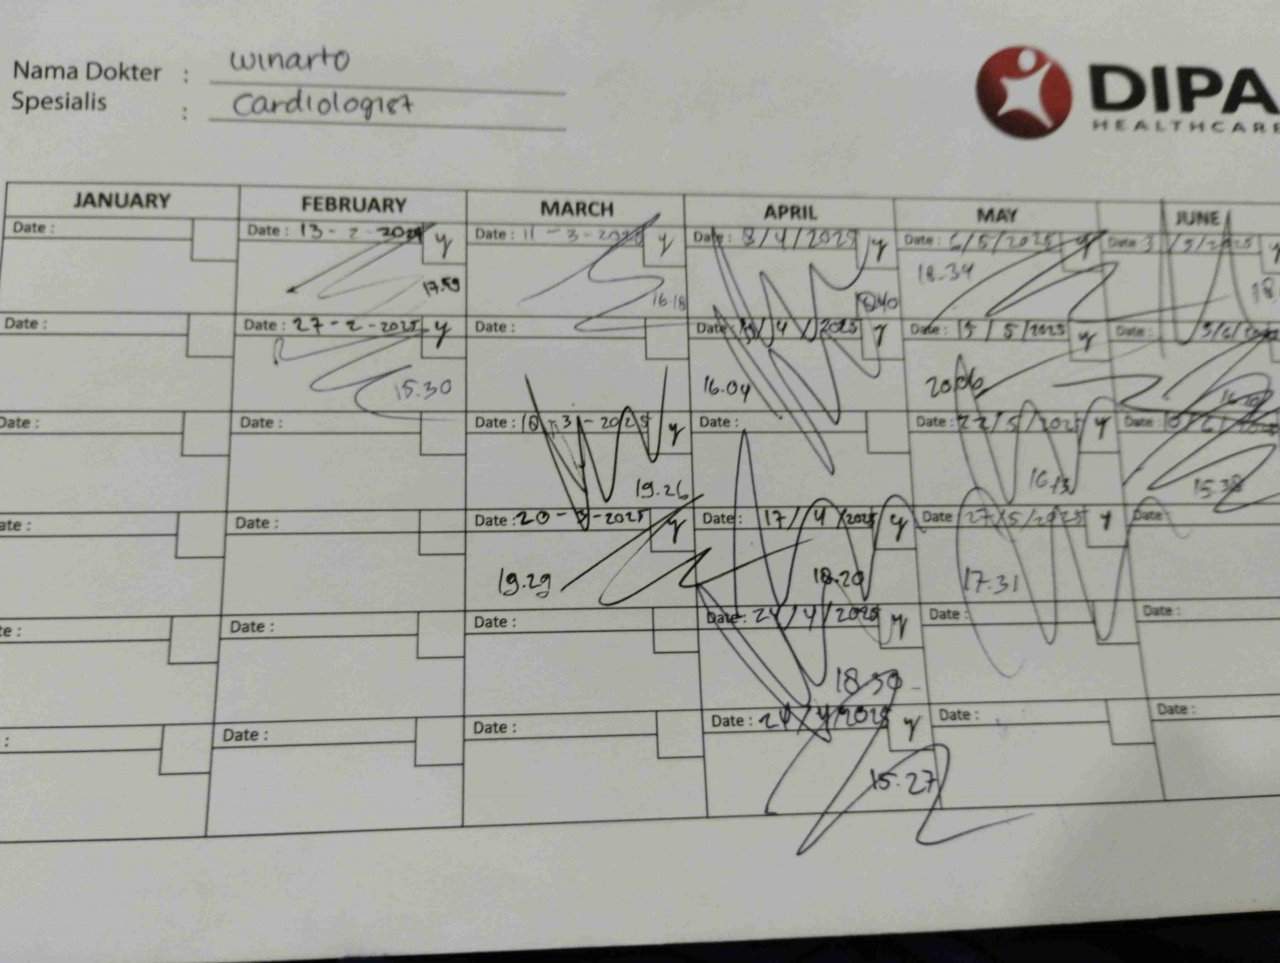 Nama Dokter : Winarto
Spesialis : Cardiologist
DIPA
HEALTHCARE
JANUARY FEBRUARY MARCH APRIL MAY JUNE
Date : Date : 13-2-2025 y Date : 11-3-2025 y Date : 8/4/2025 y Date : 6/5/2025 y Date
17.59 16.18 18.40 18.34
Date : Date : 27-2-2025 y Date : Date : 4/2025 y Date : 15/5/2025 y Date : 5/6/
15.30 16.04 20.06
Date : Date : Date : 18-3-2025 y Date : Date : 22/5/2025 y Date :
19.26 16.13 15.38
Date : Date : Date : 20-3-2025 y Date : 17/4/2025 y Date 27/5/2025 y Date
19.29 18.20 17.31
Date : Date : Date : 24/4/2025 y Date : Date :
18.30
: Date : Date : Date : 29/4/2025 y Date : Date :
15.27